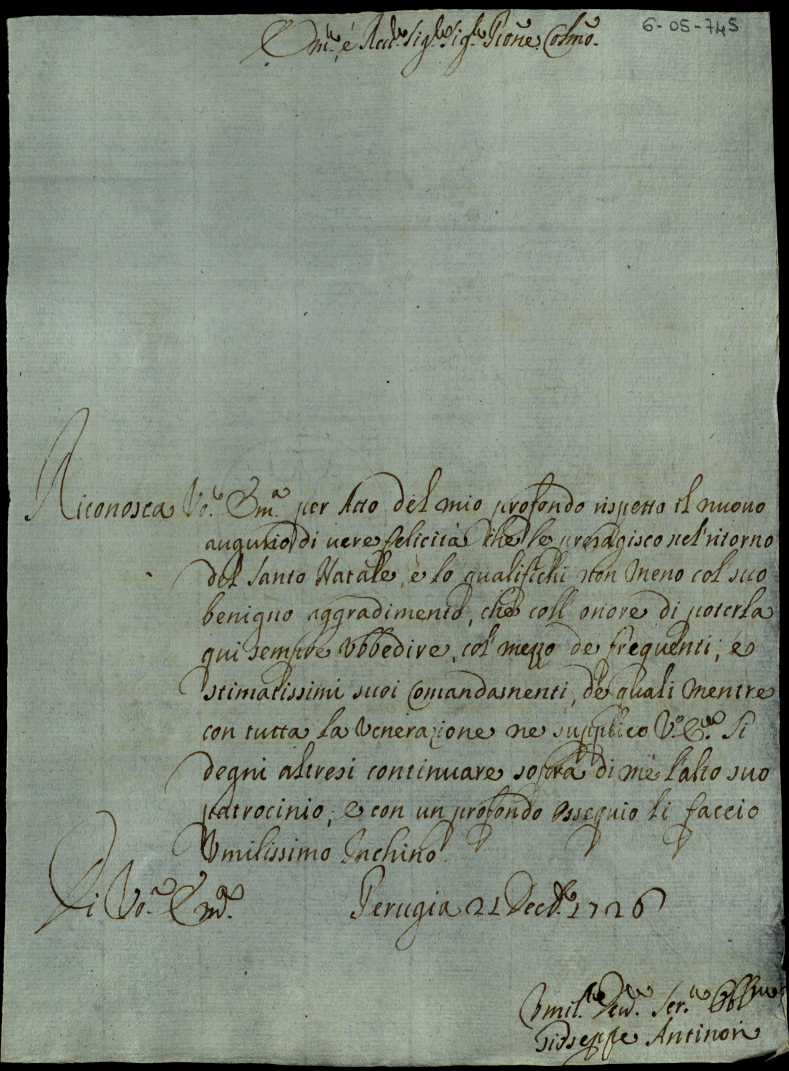 6-05-745
Em.mo é Reu.mo Sig.re Sig.re Pròne Colmo.
Riconosca Vo.a Em.a per Atto del mio profondo rispetto il nuouo
augurio di uere felicità che le presagisco nel ritorno
del Santo Natale, è lo qualifichi non meno col suo
benigno aggradimento, che coll'onore di poterla
qui sempre Vbbedire, col mezzo de frequenti, è
stimatissimi suoi Comandamenti, de quali Mentre
con tutta la Venerazione ne supplico V.a E.a Si
degni altresi continuare sopra di me l'alto suo
patrocinio; e con un profondo Ossequio li faccio
Vmilissimo Inchino
Di Vo.a Em.a Perugia 21 Decb.e 1726
Vmil.mo Deu.mo Ser.re Obb.mo
Giuseppe Antinori